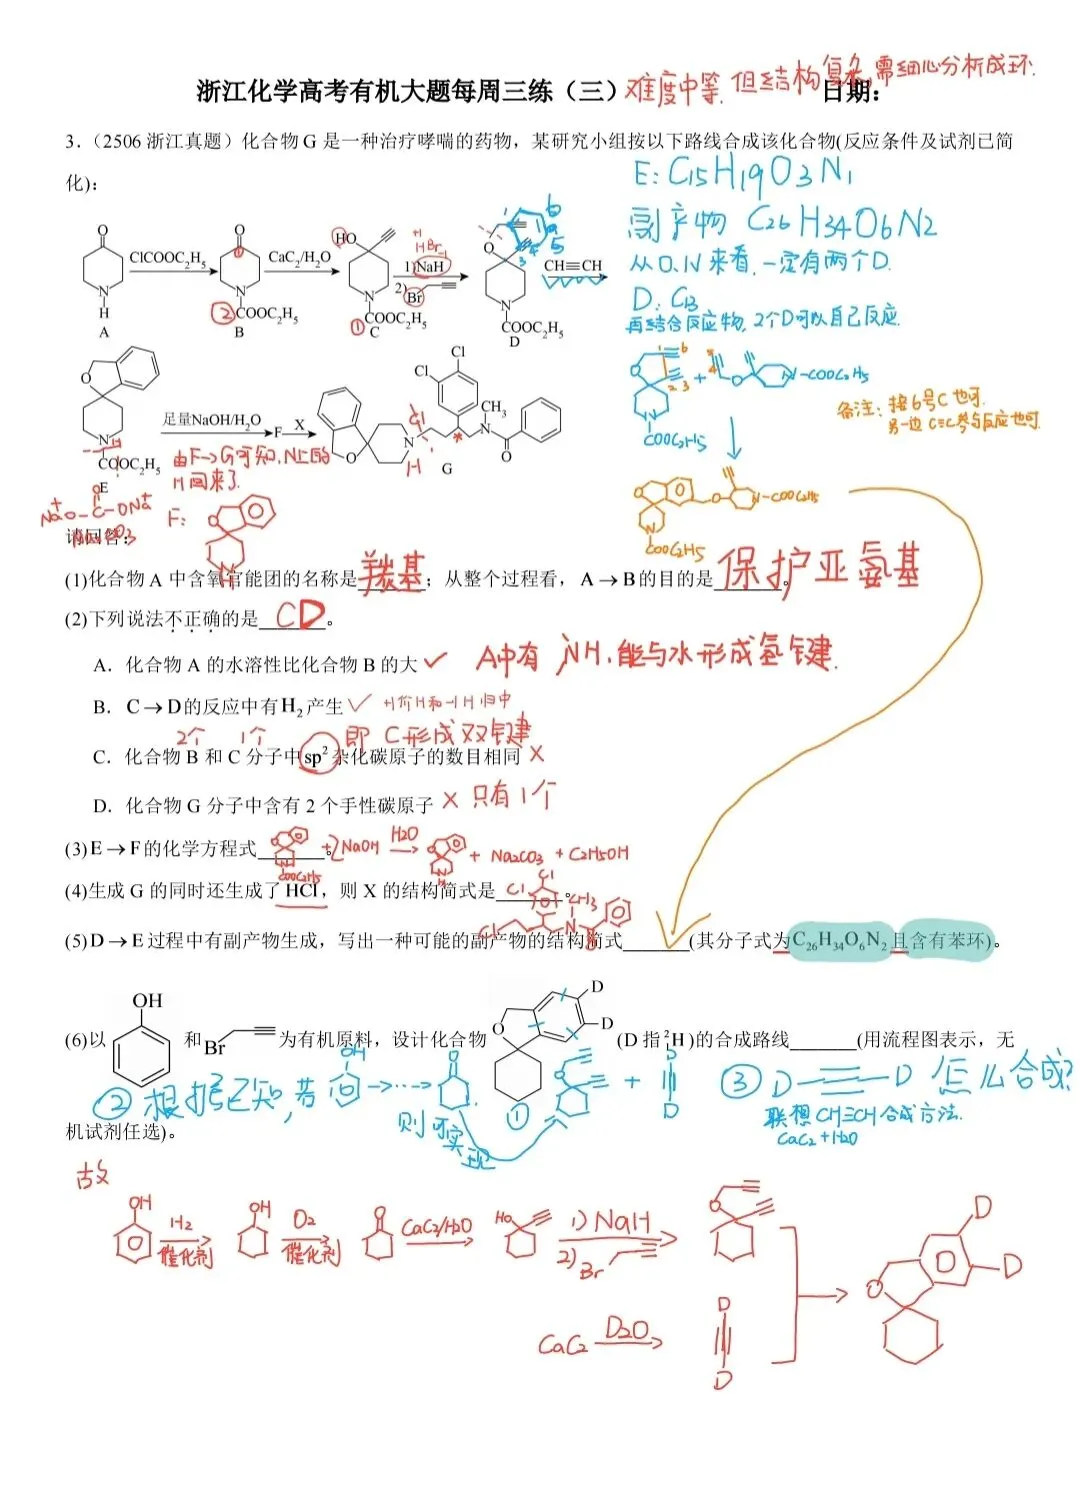 浙江化学高考有机大题每周三练（三） 日期：
难度中等.但结构复杂,需细心分析成环.
3.（2506浙江真题）化合物G是一种治疗哮喘的药物，某研究小组按以下路线合成该化合物(反应条件及试剂已简
化)：
E: C15H19O3N1
副产物 C26H34O6N2
从O.N来看.一定有两个D.
D: C13
再结合反应物, 2个D可以自己反应.
O
N
H
A
ClCOOC2H5
O
①
②
N
COOC2H5
B
CaC2/H2O
HO
N
①
COOC2H5
C
+1
HBr-1
1)NaH
2)
Br
1
6
5
4
3
O
N
COOC2H5
D
CH≡CH
O
N
COOC2H5
E
足量NaOH/H2O
F
X
由F→G可知,N上的
H回来了.
Cl
Cl
CH3
N
O
N
O
G
Cl
H
*
O
N
COOC2H5
+
O
N-COOC2H5
备注：接6号C也可.
另一边C≡C参与反应也可.
O
N
COOC2H5
O
N-COOC2H5
Na+O-C-ONa+
O
Na2CO3
F:
O
N
H
请回答：
(1)化合物A中含氧官能团的名称是羰基；从整个过程看，A→B的目的是保护亚氨基。
(2)下列说法不正确的是CD。
A．化合物A的水溶性比化合物B的大✓ A中有NH.能与水形成氢键.
B．C→D的反应中有H2产生✓ +1价H和-1H归中
2个 1个 即C形成双键
C．化合物B和C分子中sp2杂化碳原子的数目相同×
D．化合物G分子中含有2个手性碳原子×只有1个
(3)E→F的化学方程式 O N COOC2H5 +2NaOH H2O→ O N H + Na2CO3 + C2H5OH 。
(4)生成G的同时还生成了HCl，则X的结构简式是 Cl Cl Cl CH3 N O 。
(5)D→E过程中有副产物生成，写出一种可能的副产物的结构简式______(其分子式为C26H34O6N2且含有苯环)。
(6)以 OH 和 Br 为有机原料，设计化合物 O D D (D指2H)的合成路线______(用流程图表示，无
①
②根据已知,若 OH →…→ O 则可实现
O + D D
③ D≡D 怎么合成?
联想CH≡CH合成方法.
CaC2+H2O
机试剂任选)。
故
OH H2 催化剂 OH O2 催化剂 O CaC2/H2O HO 1)NaH 2)Br O
CaC2 D2O D D
O D D